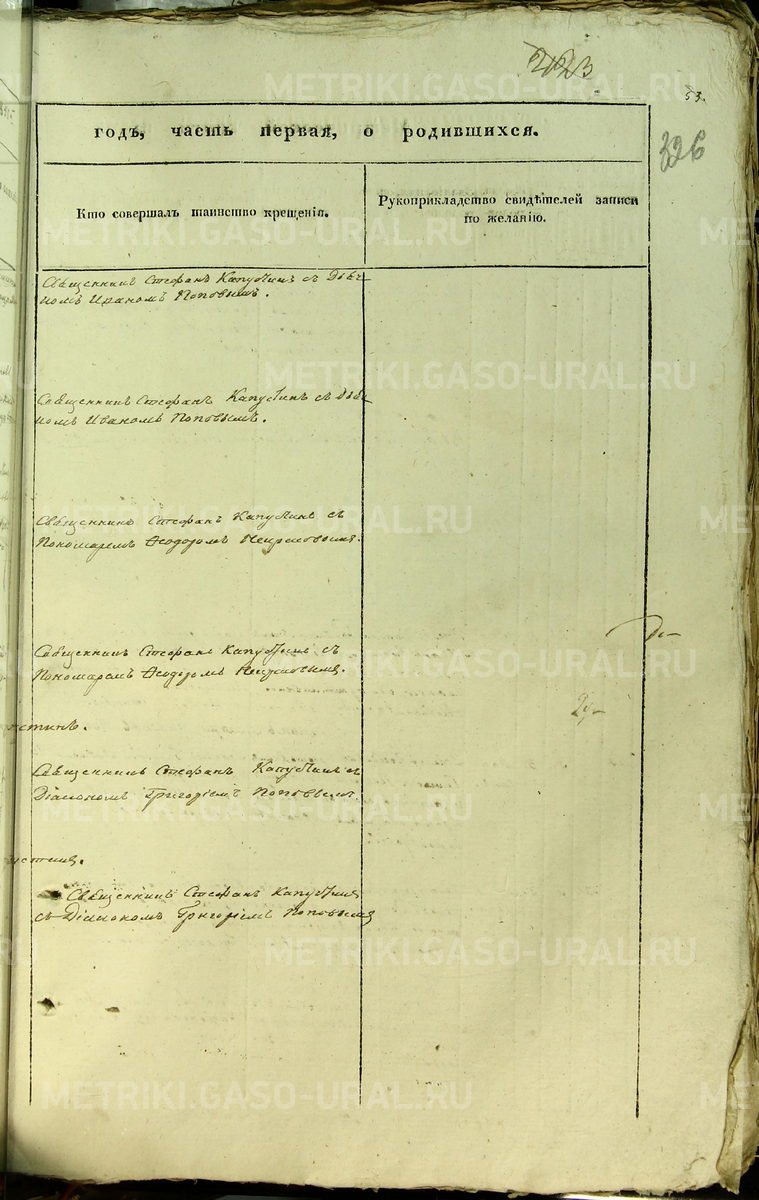 53.
326
годъ, часть первая, о родившихся.
Кто совершалъ таинство крещенія.
Рукоприкладство свидѣтелей записи
по желанію.
Священникъ Стефанъ Капустинъ съ Дьяч-
комъ Иваномъ Поповымъ.
Священникъ Стефанъ Капустинъ съ Дьяч-
комъ Иваномъ Поповымъ.
Священникъ Стефанъ Капустинъ съ
Пономаремъ Ѳеодоромъ
Священникъ Стефанъ Капустинъ съ
Пономаремъ Ѳеодоромъ
Священникъ Стефанъ Капустинъ съ
Діакономъ Григоріемъ Поповымъ.
Священникъ Стефанъ Капустинъ
съ Діакономъ Григоріемъ Поповымъ
METRIKI.GASO-URAL.RU